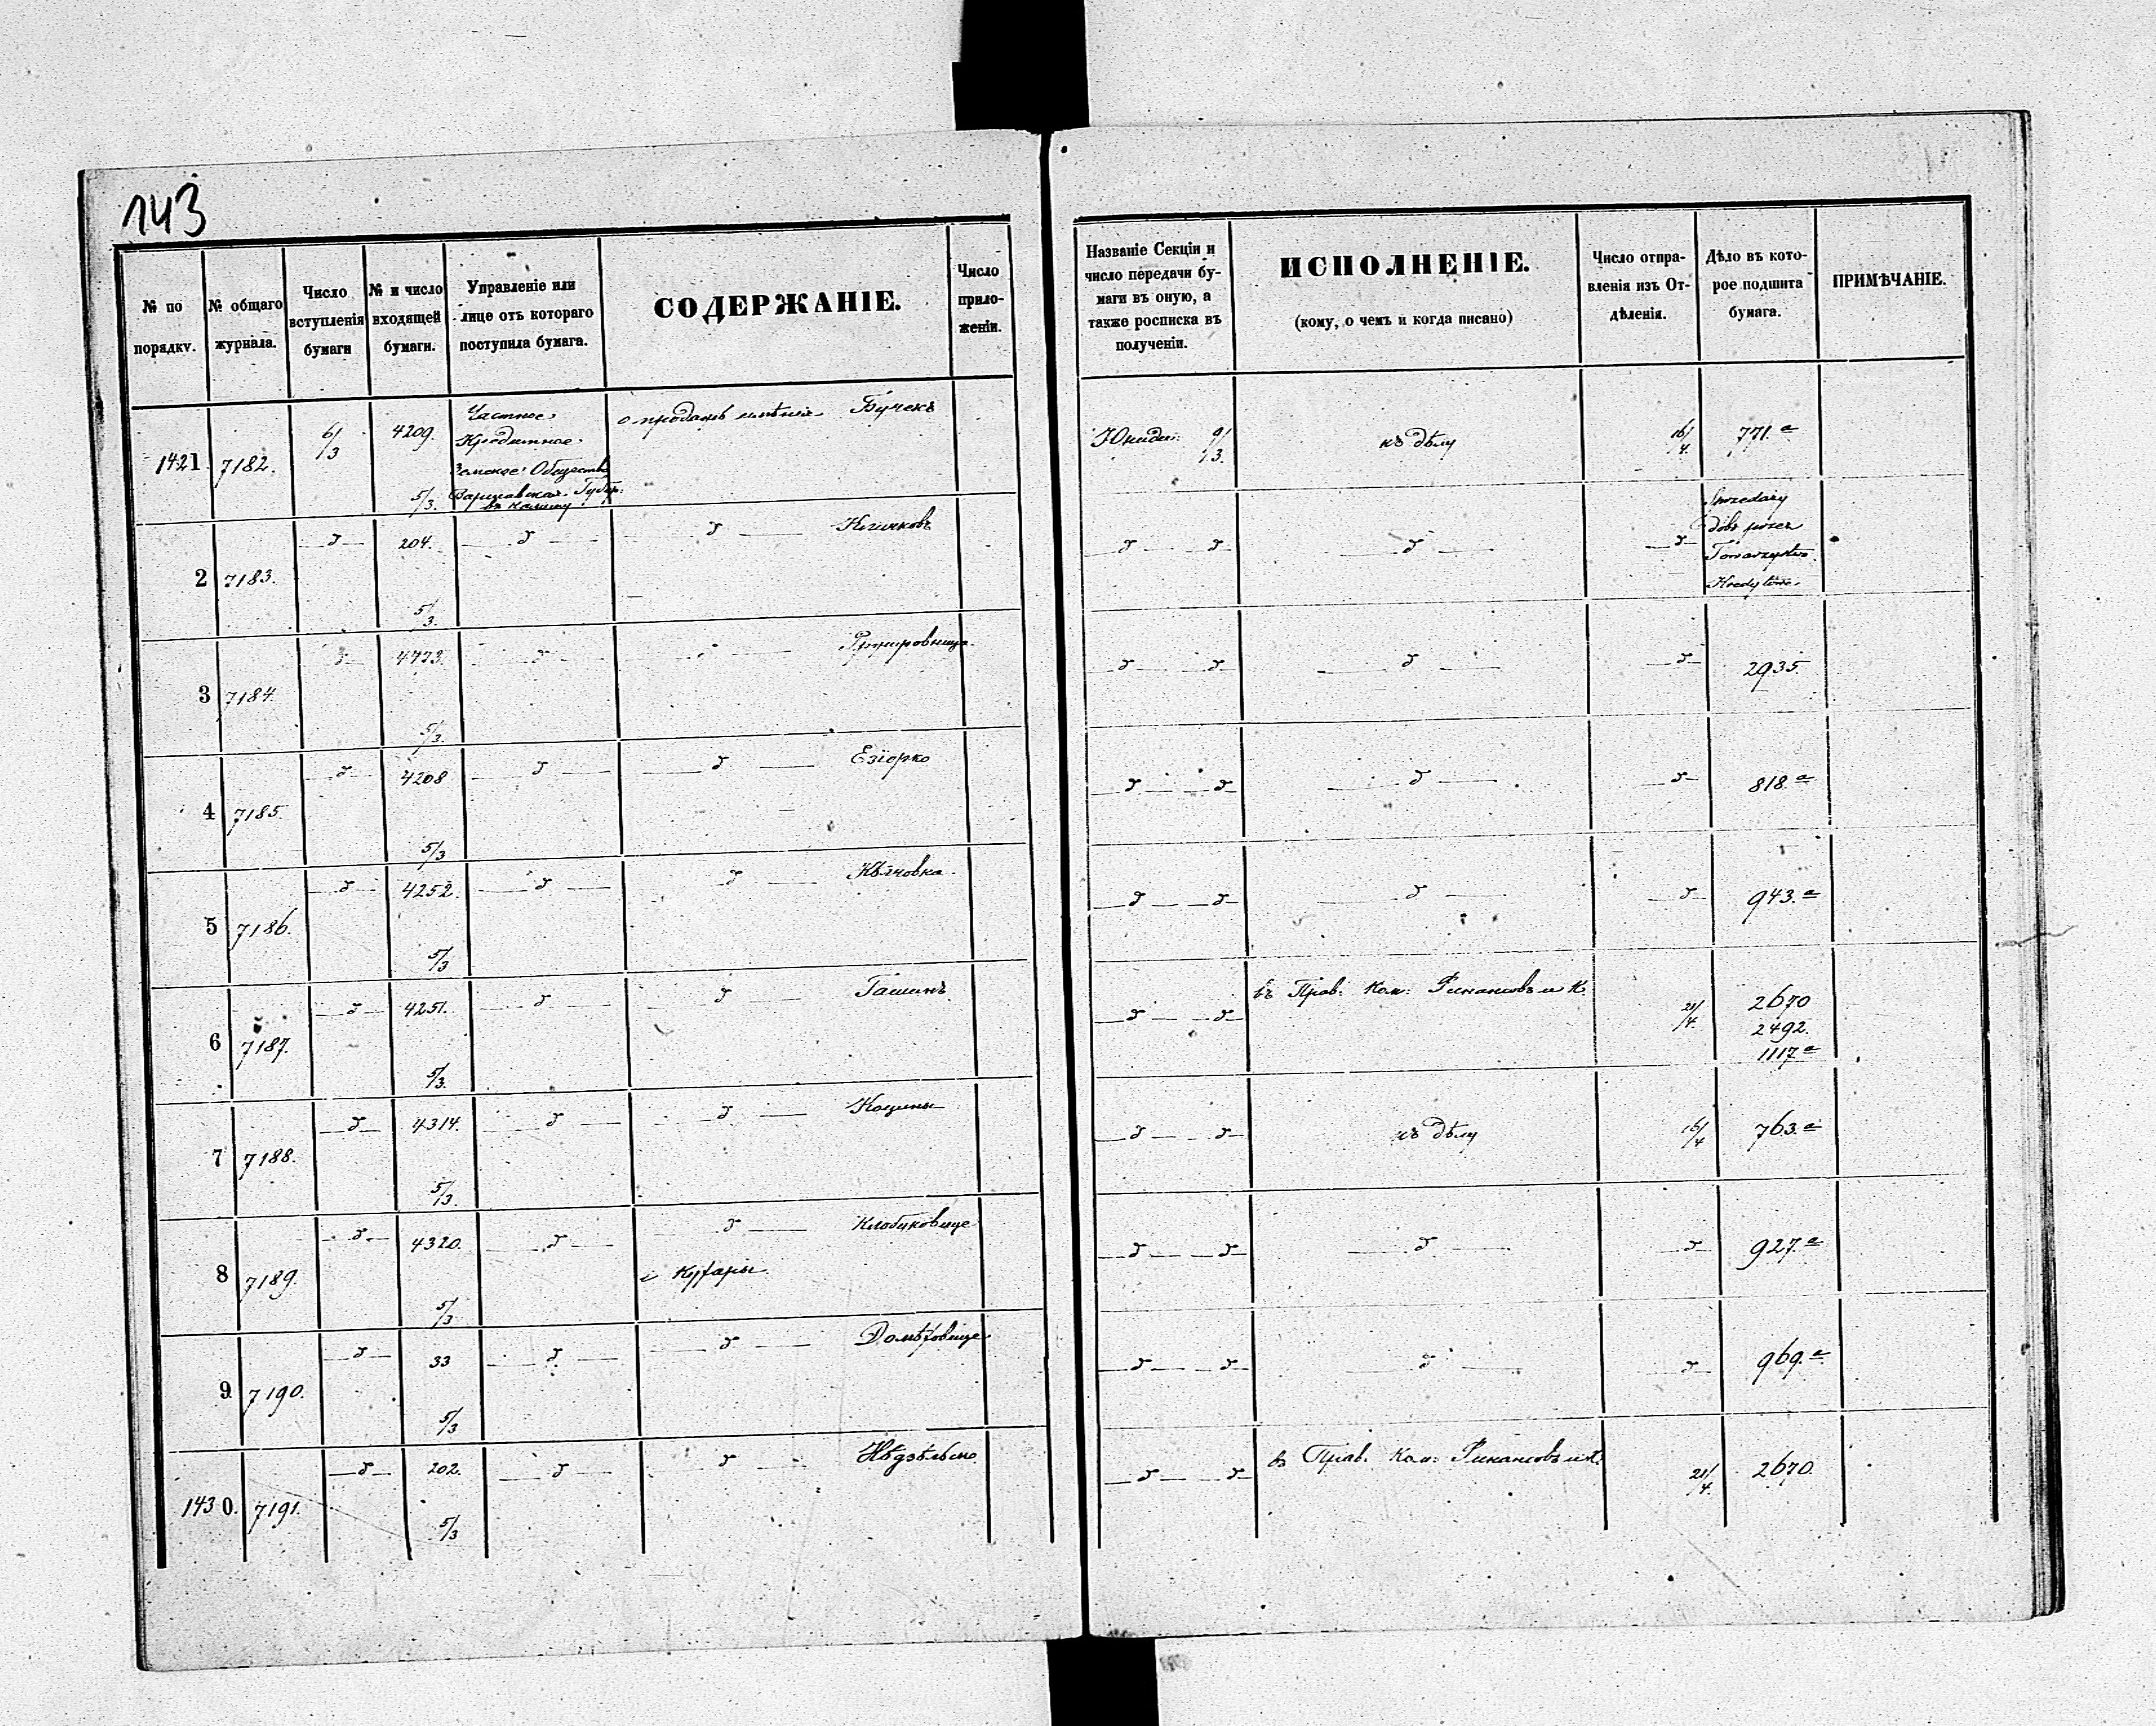 143
№ по порядку.
№ общаго журнала.
Число вступленія бумаги
№ и число входящей бумаги.
Управленіе или лице отъ котораго поступила бумага.
СОДЕРЖАНІЕ.
Число приложеніи.
Названіе Секціи и число передачи бумаги въ оную, а также росписка въ полученіи.
ИСПОЛНЕНІЕ.
(кому, о чемъ и когда писано)
Число отправленія изъ Отдѣленія.
Дѣло въ которое подшита бумага.
ПРИМѢЧАНІЕ.
1421 7182. 6/3 4209. 5/3.
Частное
Кредитное
Земское Общество
Варшавская Губер:
о продажѣ имѣнія Бучекъ
9/3. къ дѣлу 16/4. 771.a
2 7183. 204. 5/3.
Towarzystwo
3 7184. 4773. 5/3. 2935.
4 7185. 4208 5/3 Езіорко 818.a
5 7186. 4252. 5/3 943.a
6 7187. 4251. 5/3. Гашинъ
въ Прав: Ком: Финансовъ и К. 21/4. 2670
2492.
1117a
7 7188. 4314. 5/3. Коцины къ дѣлу 16/4 763.a
8 7189. 4320. 5/3 Клобуковице 927.a
9 7190. 33 5/3 969.a
1430. 7191. 202. 5/3 Нѣдзѣльско
въ Прав. Ком: Финансовъ и К. 21/4. 2670.